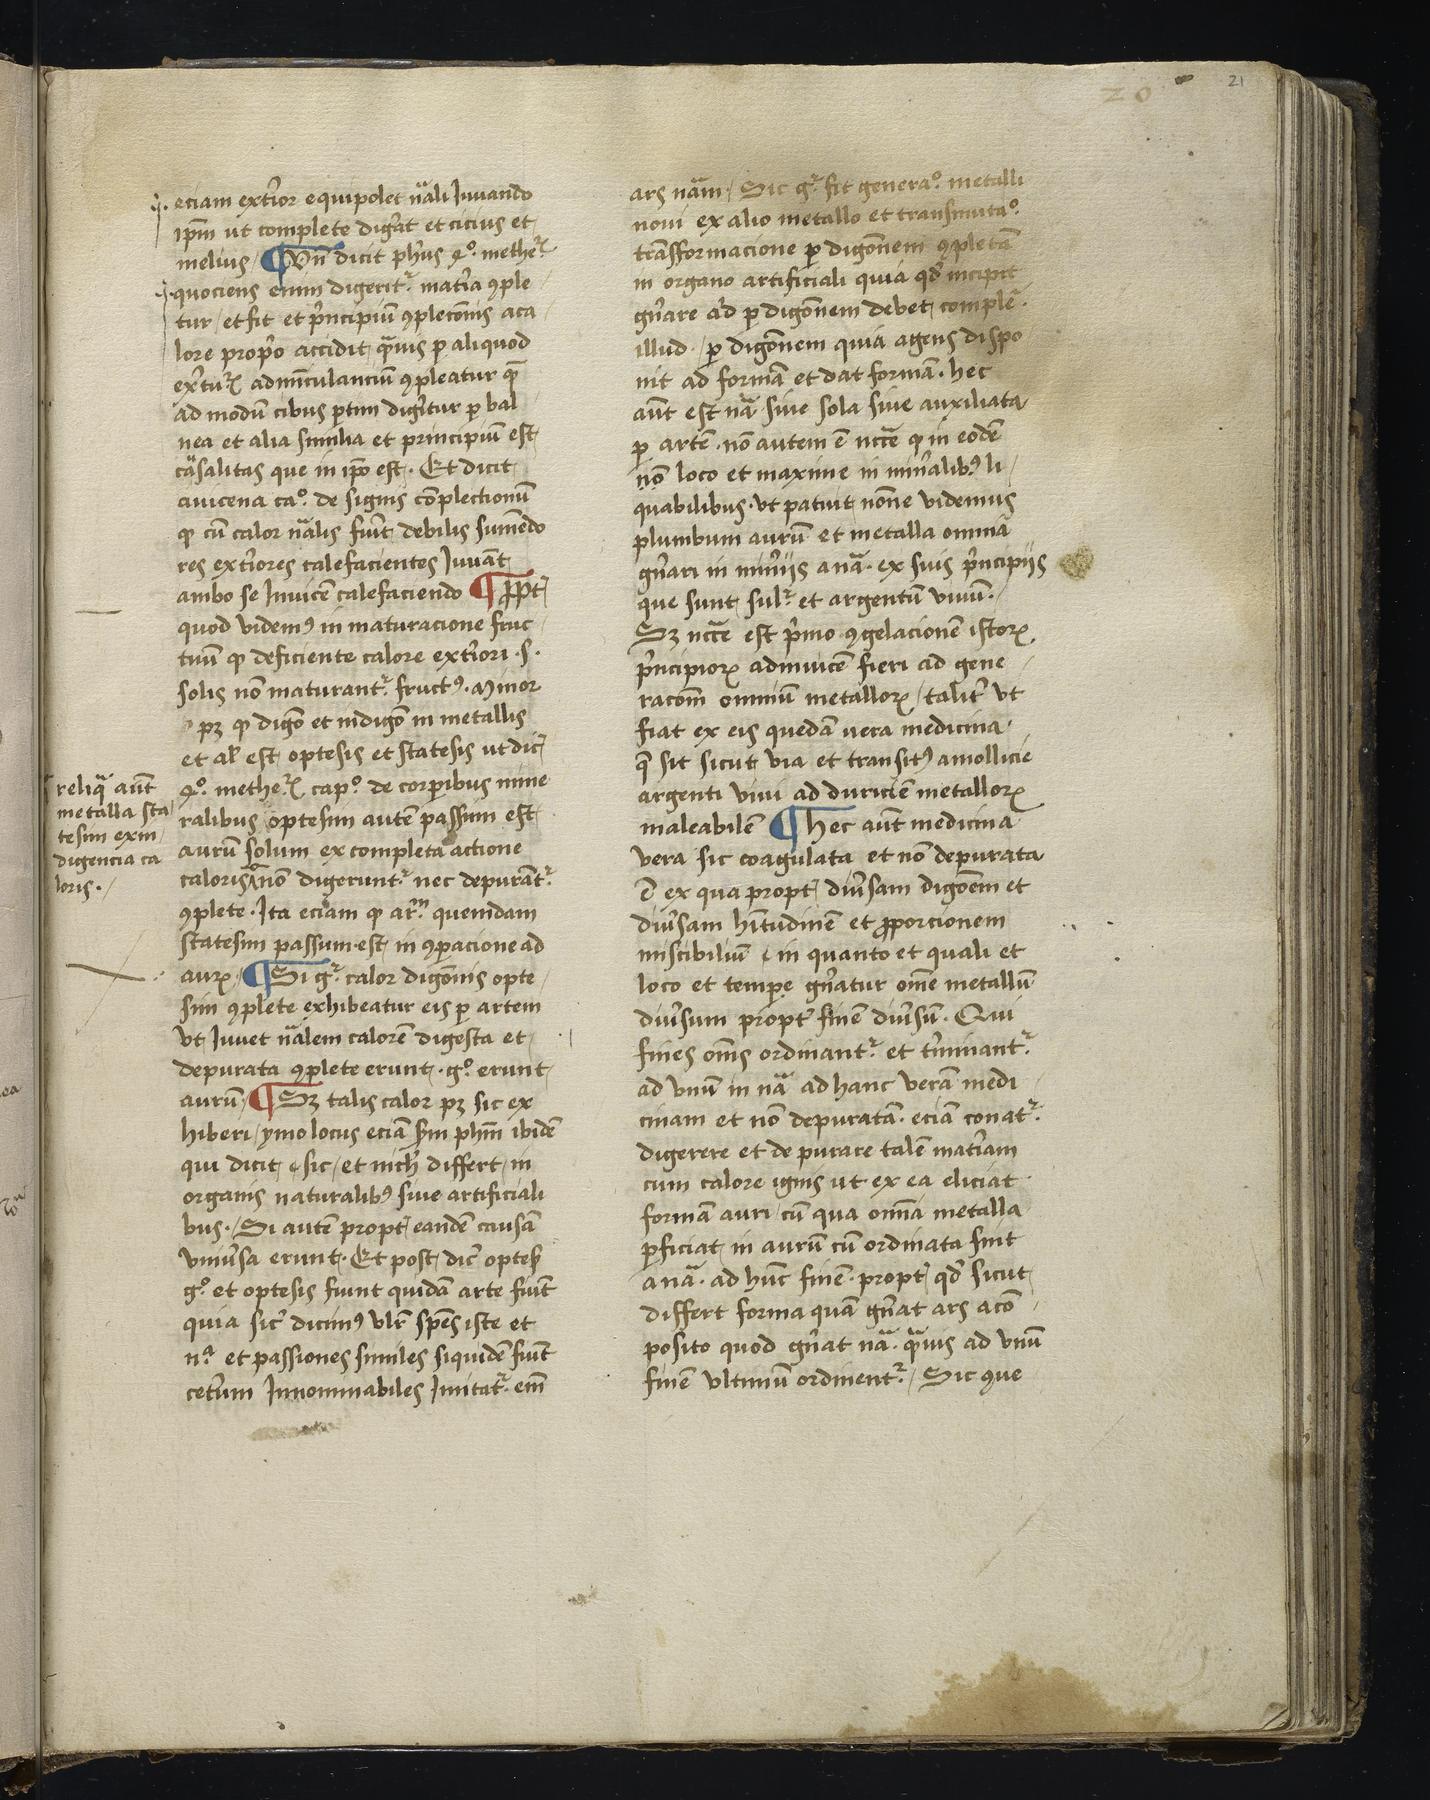 21
20
eciam extior equipolet nāli Juuando
ipm̄ ut complete digāt et cicius et
melius / ¶ Vn̄ dicit phūs 4º methe
quociens enim digerit matia 9ple
tur / et fit et pncipiū 9pleconis a ca
lore propo accidit quis p aliquod
admiculanciū 9pleatur
ad modū cibus ptim digitur p bal
nea et alia similia et principiū est
cāsalitas que in ipo est. Et dicit
auicena caº de signis complectionū
q cū calor nālis fuit debilis sumēdo
res extiores calefacientes Juuāt
ambo se Inuicē calefaciendo ¶ Ppt
quod videm9 in maturacione fruc
tuū q deficiente calore extiori .s.
solis non maturant fruct9. Minor
pz q digō et indigō in metallis
et al est optesis et statesis ut dic
4º methe capº de corpibus mine
ralibus optesim autē passum est
aurū solum ex completa actione
caloris non digerunt nec depurāt
9plete. Ita eciam q quemdam
statesim passum est in 9pacione ad
aur / ¶ Si g calor digōnis opte
sim 9plete exhibeatur eis p artem
vt Juuet nālem calorē digesta et
depurata 9plete erunt. gº erunt
aurū / ¶ Sz talis calor pz sic ex
hiberi / ymo locus eciā phm̄ ibidē
qui dicit sic / et nich differt in
organis naturalib9 siue artificiali
bus. / Si autē propt eandē causā
vniusa erunt. Et post dic optes
gº et optesis fiunt quidā arte fiūt
quia sic dicim9 spēs iste et
nª et passiones similes siquidē fiūt
cetum Innominabiles Imitat em̄
reliq aūt
metalla sta
tesim ex in
digencia ca
loris. /
ars nām / Sic g fit generaº metalli
noui ex alio metallo et transmutaº
transformacione p digōnem 9pletā
in organo artificiali quia qd incipit
gnare ad p digōnem debet comple
illud. p digōnem quia agens dispo
nit ad formā et dat formā. hec
aūt est nā siue sola siue auxiliata
p artē. nō autem ē ncce q in eodē
nō loco et maxime in minalib9 li
quabilibus. vt patuit nonne videmus
plumbum aurū et metalla omnia
gnari in miniis a nā. ex suis pncipiis
que sunt sul et argentū viuū.
Sz ncce est pmo 9gelacionē istor
pncipior adinuicē fieri ad gene
racōm omniū metallor / talit vt
fiat ex eis quedā uera medicina
q̄ sit sicut via et transit9 a mollicie
argenti viui ad duriciē metallor
maleabilē ¶ Hec aūt medicina
vera sic coagulata et nō depurata
ē ex qua propt diusam digōem et
diusam hitudinē et pporcionem
miscibiliū in quanto et quali et
loco et tempe gnatur ome metallū
diusum propt finē diusū. Qui
fines oms ordinant et tminant
ad vnū in nā ad hanc verā medi
cinam et nō depuratā. eciā conat
digerere et depurare talē matiam
cum calore ignis ut ex ea eliciat
formā auri / cū qua omnia metalla
pficiat in aurū cū ordinata sint
a nā. ad hūc finē. propt qd sicut
differt forma quā gnat ars a cō
posito quod gnat nā. quis ad vnū
finē vltimū ordinent / Sic 9ue